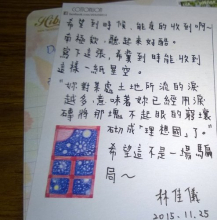 希望到時候,能真的收到啊~
南極歐,聽起來好酷。
寫下這張,希望到時能收到
這樣一紙星空。
"妳對某處土地所流的淚
越多,意味著妳已經用淚
磚將那塊不起眼的窮壤
砌成"理想國"了。"
希望這不是一場騙
局~
林佳儀
2015.11.25